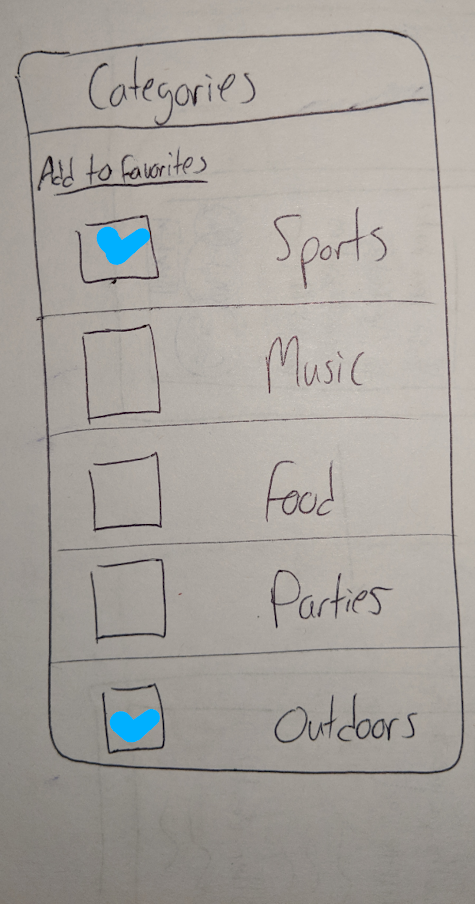 Categories
Add to favorites
Sports
Music
Food
Parties
Outdoors